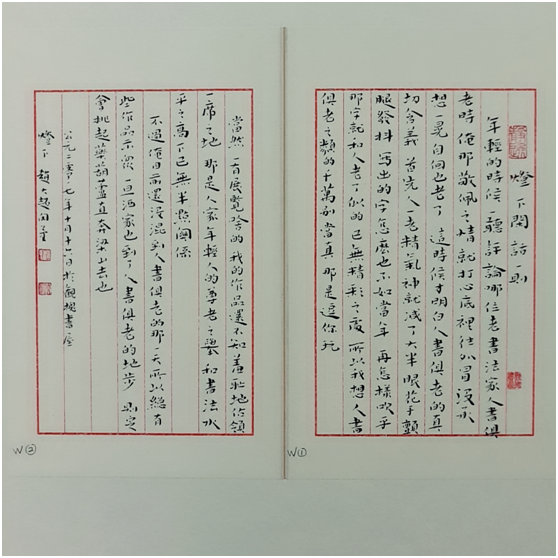 燈下閑話一則
年輕的時候 聽評論那位老書法家人書俱
老時 俺那敬佩之情就打心底裡往外冒 沒承
想一晃自個也老了 這時候才明白人書俱老的真
切含義 首先人一老精氣神就減了大半 眼花手顫
腿發抖 寫出的字怎麼也不如當年 再怎樣吹乎
那字就和人老了似的 已無精彩之處 所以我想 人書
俱老之類的千萬別當真 那是逗你玩
W①
當然 一有展覽啥的 我的作品還不知羞恥地佔領
一席之地 那是人家年輕人的尊老之舉 和書法水
平之高下已無半點關係
不過俺目前還沒混到人書俱老的那一天 所以總有
些作品示眾 一旦洒家也到了人書俱老的地步 則定
會挑起藥葫蘆直奔梁山去也
公元二零一七年十月十六日於 書屋
燈下 趙大超
W②